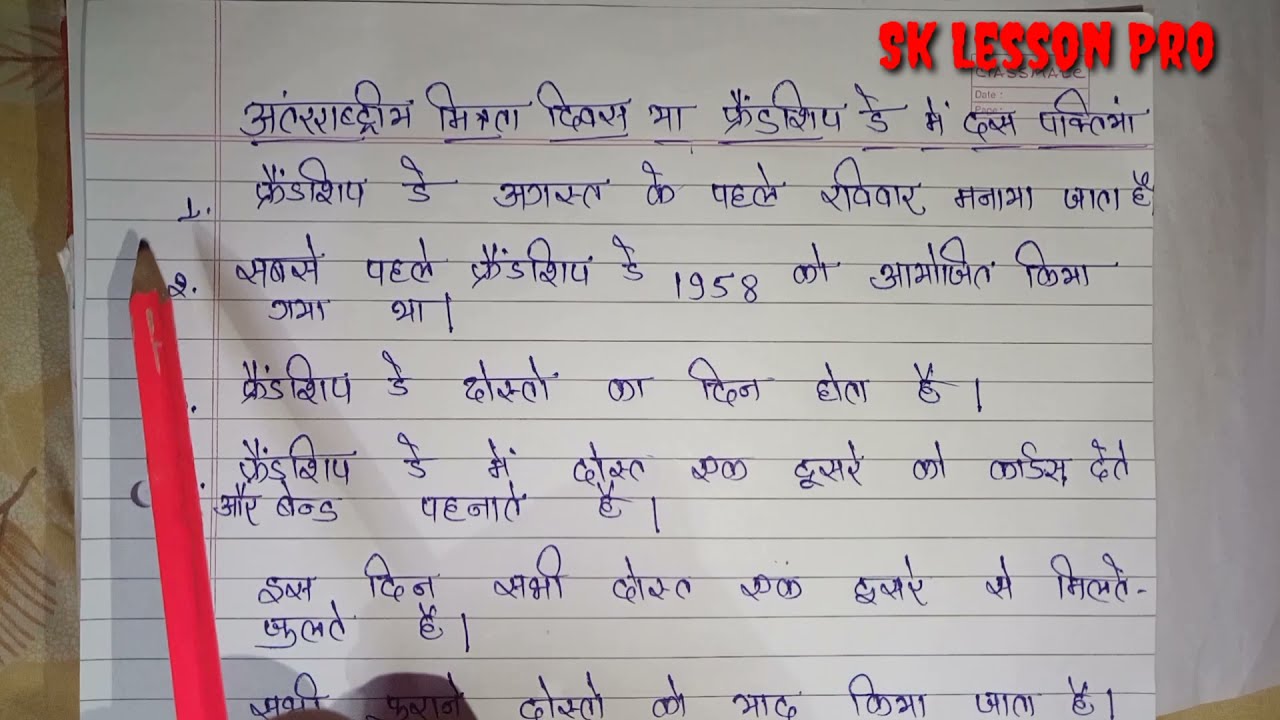 SK LESSON PRO
CLASSMATE
Date :
Page :
अंतरराष्ट्रीय मित्रता दिवस या फ्रैंडशिप डे में दस पक्तियां
1. फ्रैंडशिप डे अगस्त के पहले रविवार मनाया जाता है
2. सबसे पहले फ्रैंडशिप डे 1958 को आयोजित किया
गया था।
फ्रैंडशिप डे दोस्तो का दिन होता है।
फ्रैंडशिप डे में दोस्त एक दूसरे को कार्डस देते
और बेन्ड पहनाते है।
इस दिन सभी दोस्त एक दूसरे से मिलते-
जुलते है।
सभी पुराने दोस्तो को याद किया जाता है।